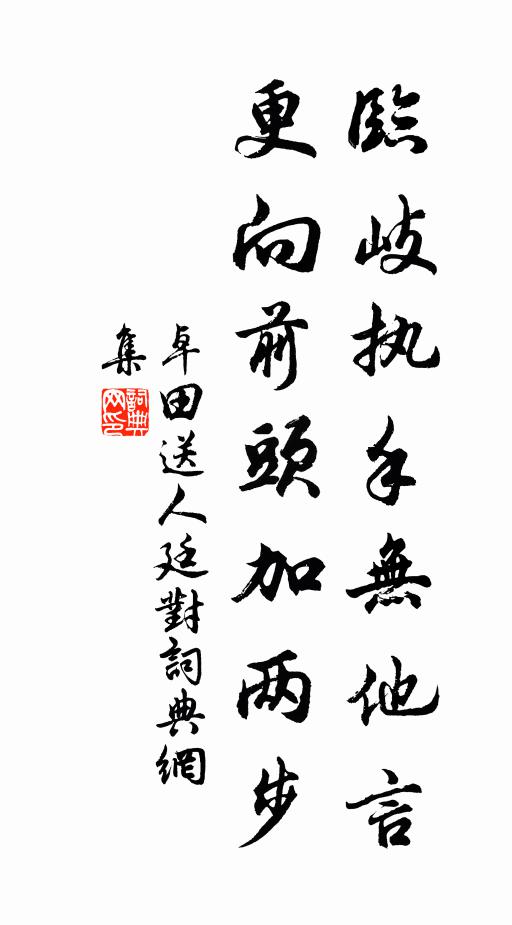 臨岐执手無他言
更向前頭加两步
卓田送人廷對詞典網
集
詞典
网印